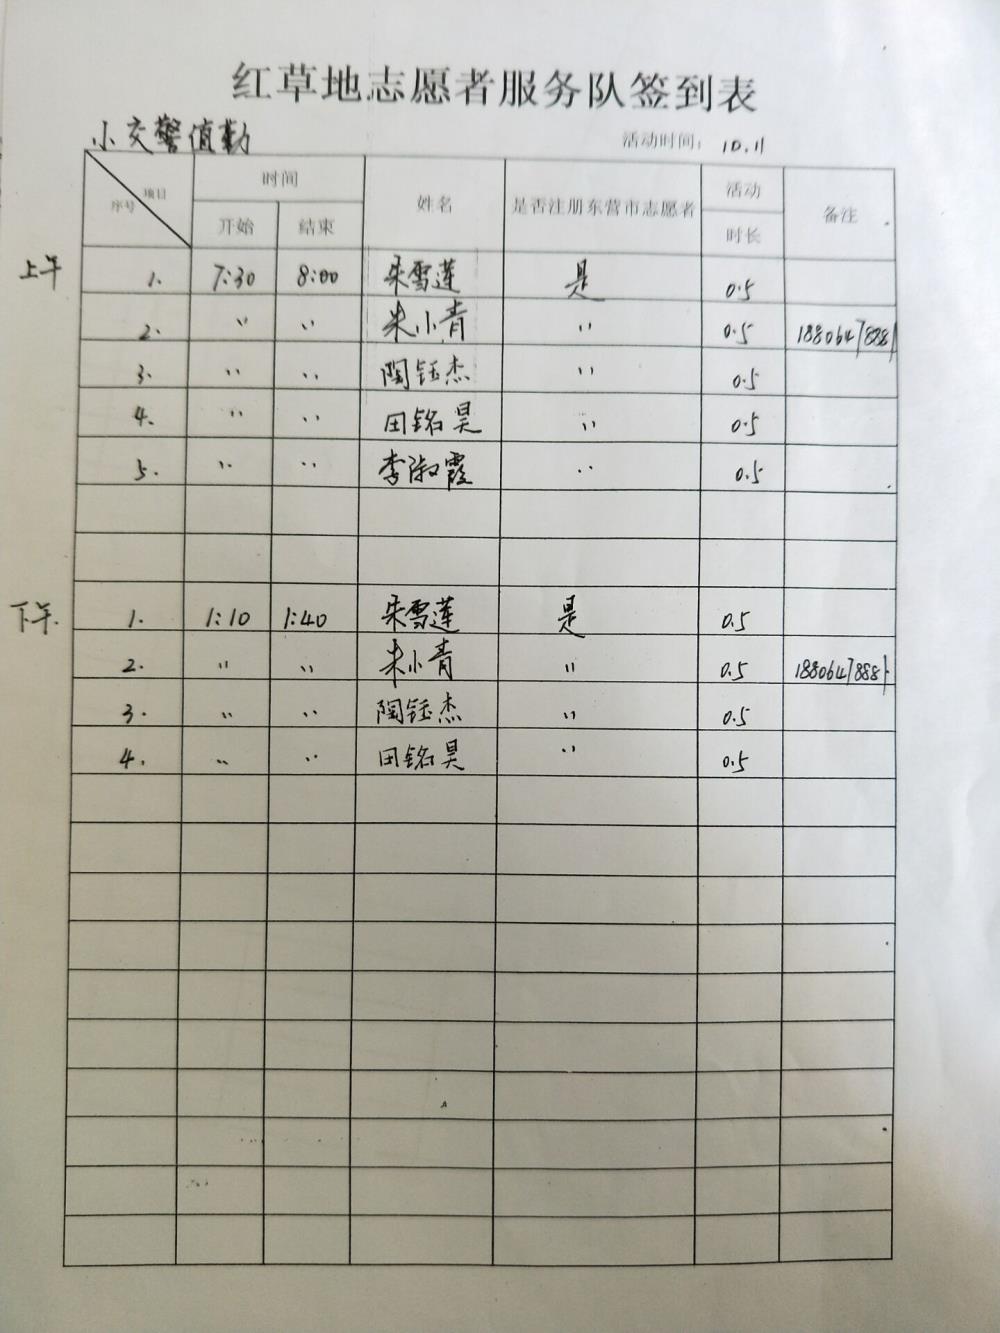 红草地志愿者服务队签到表
小交警值勤 活动时间: 10.11
项目 序号 时间 姓名 是否注册东营市志愿者 活动 备注
开始 结束 时长
上午 1. 7:30 8:00 朱雪莲 是 0.5
2. 〃 〃 朱小青 〃 0.5
3. 〃 〃 陶钰杰 〃 0.5
4. 〃 〃 田铭昊 〃 0.5
5. 〃 〃 李淑霞 〃 0.5
下午. 1. 1:10 1:40 朱雪莲 是 0.5
2. 〃 〃 朱小青 〃 0.5
3. 〃 〃 陶钰杰 〃 0.5
4. 〃 〃 田铭昊 〃 0.5